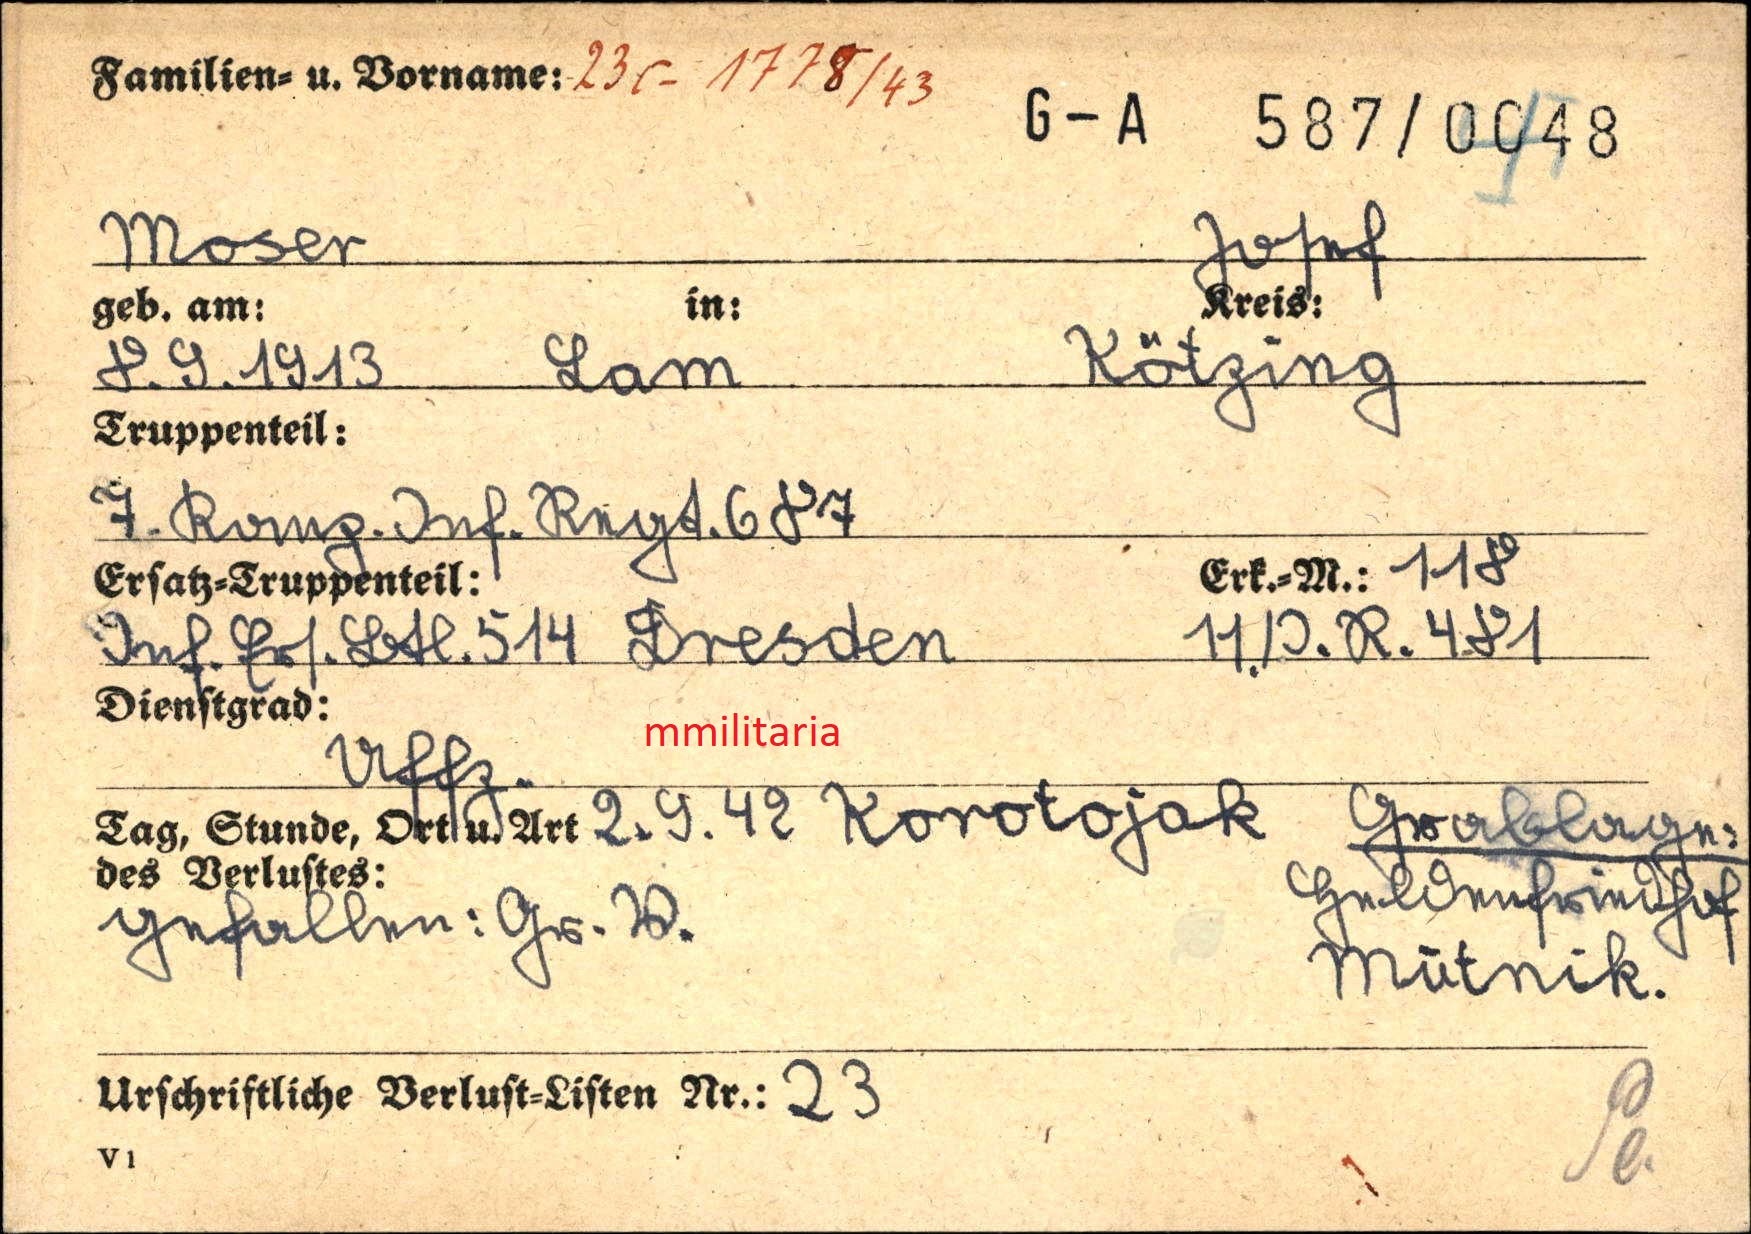 Familien- u. Vorname: 23c- 1778/43
G-A 587/0048
Moser Josef
geb. am: in: Kreis:
8.9.1913 Lam Kötzing
Truppenteil:
7. Komp. Inf. Regt. 687
Ersatz-Truppenteil: Erk.-M.: 118
Inf. Ers. Btl. 514 Dresden 11./I.R. 481
Dienstgrad:
Uffz.
mmilitaria
Tag, Stunde, Ort u. Art 2.9.42 Korotojak Grablage:
des Verlustes: Heldenfriedhof
gefallen: Gr. W.
Mutnik.
Urschriftliche Verlust-Listen Nr.: 23
V 1